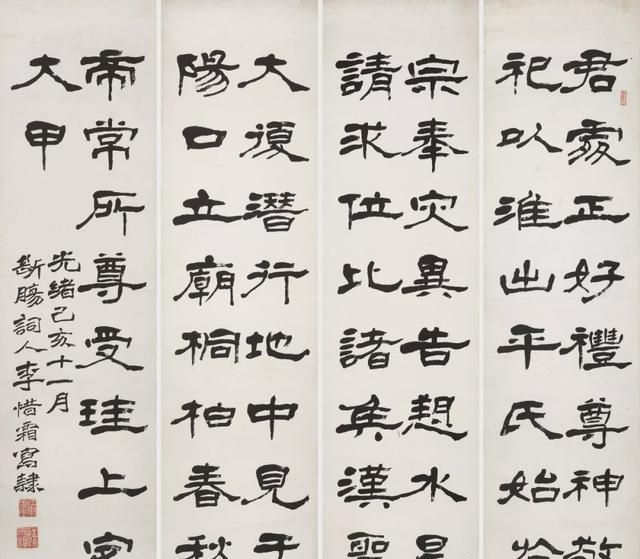 君處正好禮尊神敬
祀以淮出平氏始於
宗奉灾異告愬水旱
請求位比諸侯漢聖
大復潛行地中見于
陽口立廟桐柏春秋
帝常所尊受珪上
大甲
光緒己亥十一月
斷腸詞人李惜霜寫隸